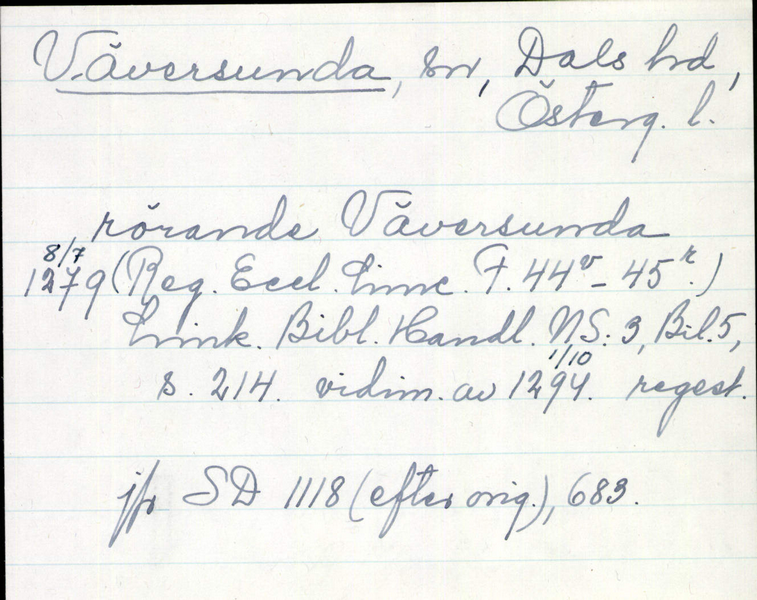 Väversunda, sn, Dals hd,
Österg. l.
rörande Väversunda
8/7
1279 (Reg. Eccl. Linc. F. 44v - 45r.)
Link. Bibl. Handl. NS: 3, Bil. 5,
1/10
s. 214. vidim. av 1294. regest.
jfr SD 1118 (efter orig.), 683.